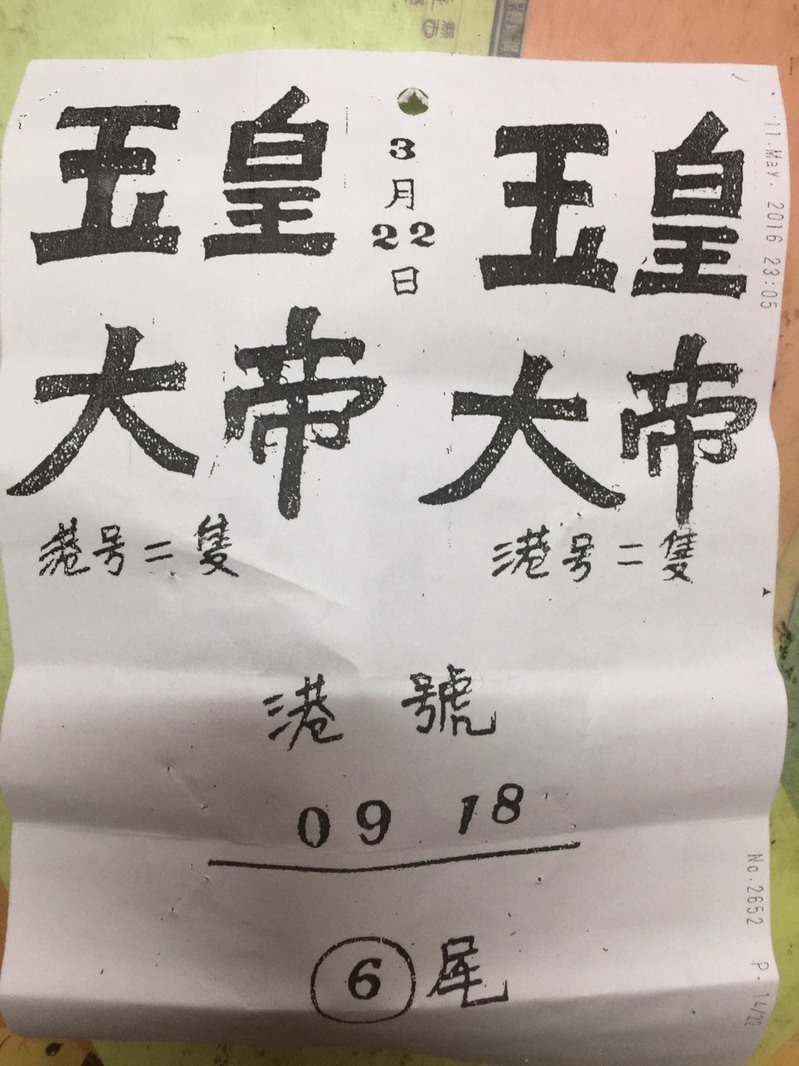 玉皇大帝
3月22日
玉皇大帝
港号二隻
港号二隻
港號
09 18
6尾
11.May. 2016 23:05
No.2652 P. 14/22